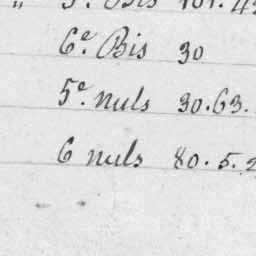 " 5e. Bis 101.4
6e. Bis 30
5e. nuls 30.63.
6 nuls 80.5.2